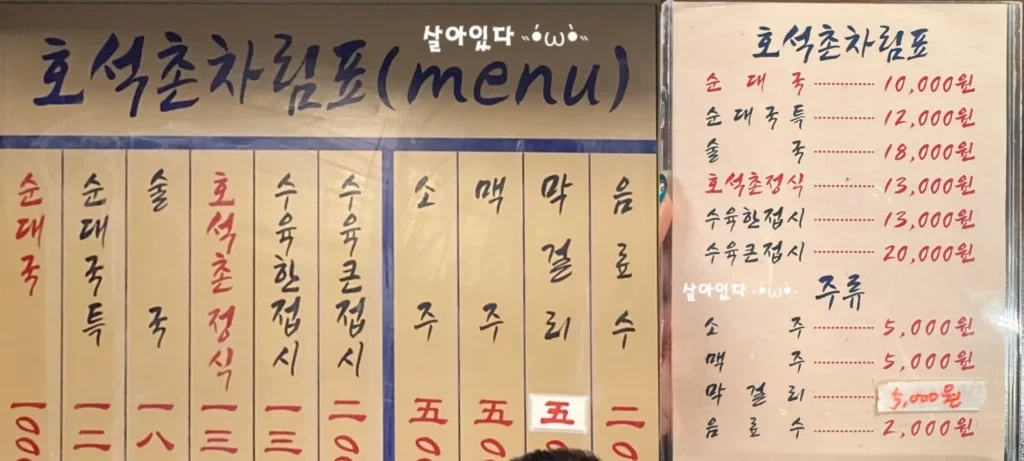 살아있다
호석촌차림표(menu)
순대국 一000
순대국특 一二
술국 一八
호석촌정식 一三
수육한접시 一三
수육큰접시 二0
소주 五0
맥주 五0
막걸리 五
음료수 二0
호석촌차림표
순대국 10,000원
순대국특 12,000원
술국 18,000원
호석촌정식 13,000원
수육한접시 13,000원
수육큰접시 20,000원
살아있다
주류
소주 5,000원
맥주 5,000원
막걸리 5,000원
음료수 2,000원